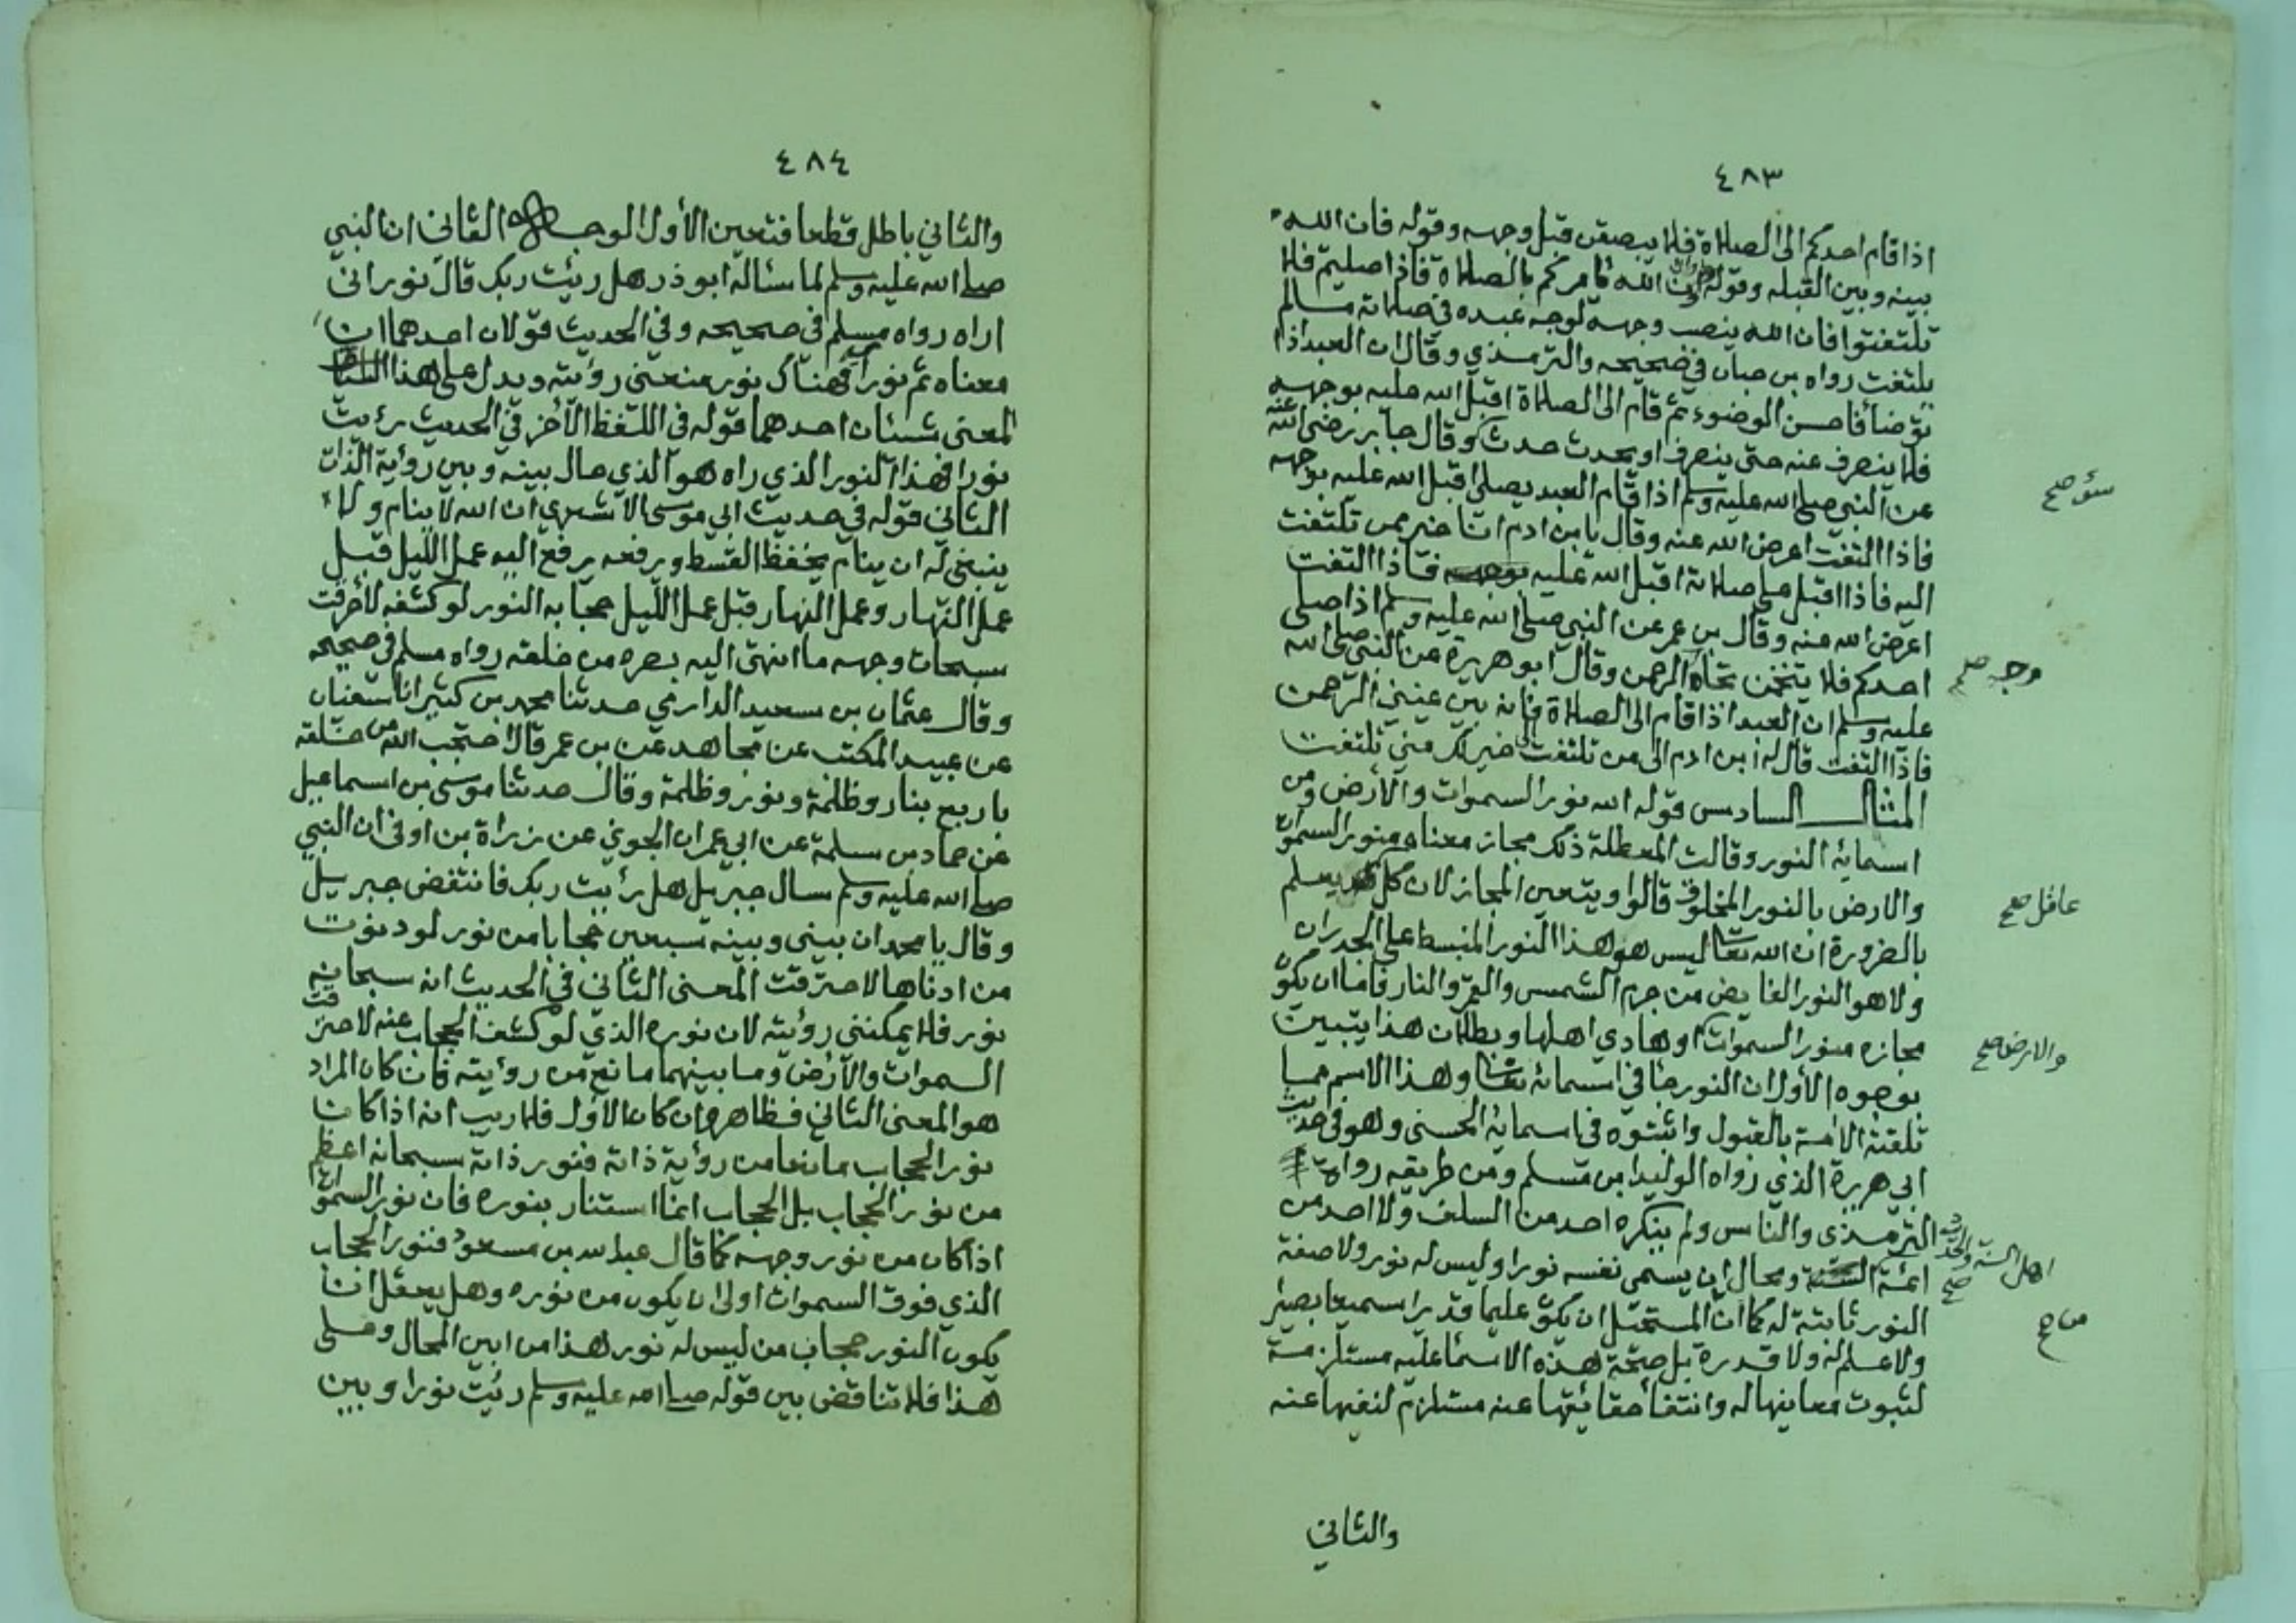 ٤٨٣
اذا قام احدكم الى الصلاة فلا يبصقن قبل وجهه وقوله فان الله
بينه وبين القبله وقوله ان الله يامركم بالصلاة فاذا صليتم فلا
تلتفتوا فان الله ينصب وجهه لوجه عبده في صلاته مالم
يلتفت رواه بن حبان في صحيحه والترمذي وقال ان العبد اذا
توضأ فاحسن الوضوء ثم قام الى الصلاة اقبل الله عليه بوجهه
فلا ينصرف عنه حتى ينصرف او يحدث حدث وقال جابر رضي الله عنه
عن النبي صلى الله عليه وسلم اذا قام العبد يصلي اقبل الله عليه بوجهه
فاذا التفت اعرض الله عنه وقال يا بن ادم انا خير ممن تلتفت
اليه فاذا اقبل على صلاته اقبل الله عليه فاذا التفت
اعرض الله عنه وقال بن عمر عن النبي صلى الله عليه وسلم اذا صلى
احدكم فلا يتنخمن تجاه الرحمن وقال ابو هريرة عن النبي صلى الله
عليه وسلم ان العبد اذا قام الى الصلاة فانه بين عيني الرحمن
فاذا التفت قال له ابن ادم الى من تلتفت خير لك مني تلتفت
المثال السادس قوله الله نور السموات والارض ومن
اسمائه النور وقالت المعطلة ذلك مجاز معناه منور السموات
والارض بالنور المخلوق قالوا ويتعين المجاز لان كل يعلم
عاقل صح
بالضرورة ان الله تعا ليس هو هذا النور المنبسط على الجدران
ولا هو النور الفايض من جرم الشمس والقمر والنار فاما ان يكون
مجازه منور السموات او هادي اهلها وبطلان هذا يتبين
والارض صح
بوجوه الأول ان النور جا في اسمائه تعا وهذا الاسم مما
تلقته الامة بالقبول واثبتوه في اسمائه الحسنى وهو في حديث
ابي هريرة الذي رواه الوليد بن مسلم ومن طريقه رواه
الترمذي والناس ولم ينكره احد من السلف ولا احد من
ائمة ومحال ان يسمي نفسه نورا وليس له نور ولا صفة
اهل السنة والحديث صح
النور ثابتة له كما ان المستحيل ان يكون عليما قديرا سميعا بصيرا
من صح
ولا علم له ولا قدرة بل صحة هذه الاسما عليه مستلزمة
لثبوت معانيها له وانتفا حقائقها عنه مستلزم لنفيها عنه
والثاني
٤٨٤
والثاني باطل قطعا فتعين الأول الوجه الثاني ان النبي
صلى الله عليه وسلم لما سئاله ابو ذر هل رئيت ربك قال نور انى
اراه رواه مسلم في صحيحه وفي الحديث قولان احدهما ان
معناه ثم نور اي فهناك نور منعني رؤيته ويدل على هذا
المعنى شيئان احدهما قوله في اللفظ الآخر في الحديث رئيت
نورا فهذا النور الذي راه هو الذي حال بينه وبين رؤية الذات
الثاني قوله في حديث ابي موسى الاشعري ان الله لا ينام ولا
ينبغي له ان ينام يخفظ القسط ويرفعه يرفع اليه عمل الليل قبل
عمل النهار وعمل النهار قبل عمل الليل حجابه النور لو كشفه لأحرقت
سبحات وجهه ما انتهى اليه بصره من خلقه رواه مسلم في صحيحه
وقال عثمان بن سعيد الدارمي حدثنا محمد بن كثير انا سفيان
عن عبيد المكتب عن مجاهد عن بن عمر قال احتجب الله من خلقه
باربع بنار وظلمة ونور وظلمة وقال حدثنا موسى بن اسماعيل
عن حماد بن سلمة عن ابي عمران الجوني عن زراة بن اوفى ان النبي
صلى الله عليه وسلم سال جبريل هل رئيت ربك فانتفض جبريل
وقال يا محمد ان بيني وبينه سبعين حجابا من نور لو دنوت
من ادناها لاحترقت المعنى الثاني في الحديث انه سبحانه
نور فلا يمكنني رؤيته لان نوره الذي لو كشف الحجاب عنه لاحترقت
السموات والأرض وما بينهما مانع من رؤيته فان كان المراد
هو المعنى الثاني فظاهر وان كان الأول فلا ريب انه اذا كان
نور الحجاب مانعا من رؤية ذاته فنور ذاته سبحانه اعظم
من نور الحجاب بل الحجاب انما استنار بنوره فان نور السموات
اذا كان من نور وجهه كما قال عبد الله بن مسعود فنور الحجاب
الذي فوق السموات اولى ان يكون من نوره وهل يعقل ان
يكون النور حجاب من ليس له نور هذا من ابين المحال وعلى
هذا فلا تناقض بين قوله صلى الله عليه وسلم رئيت نورا وبين